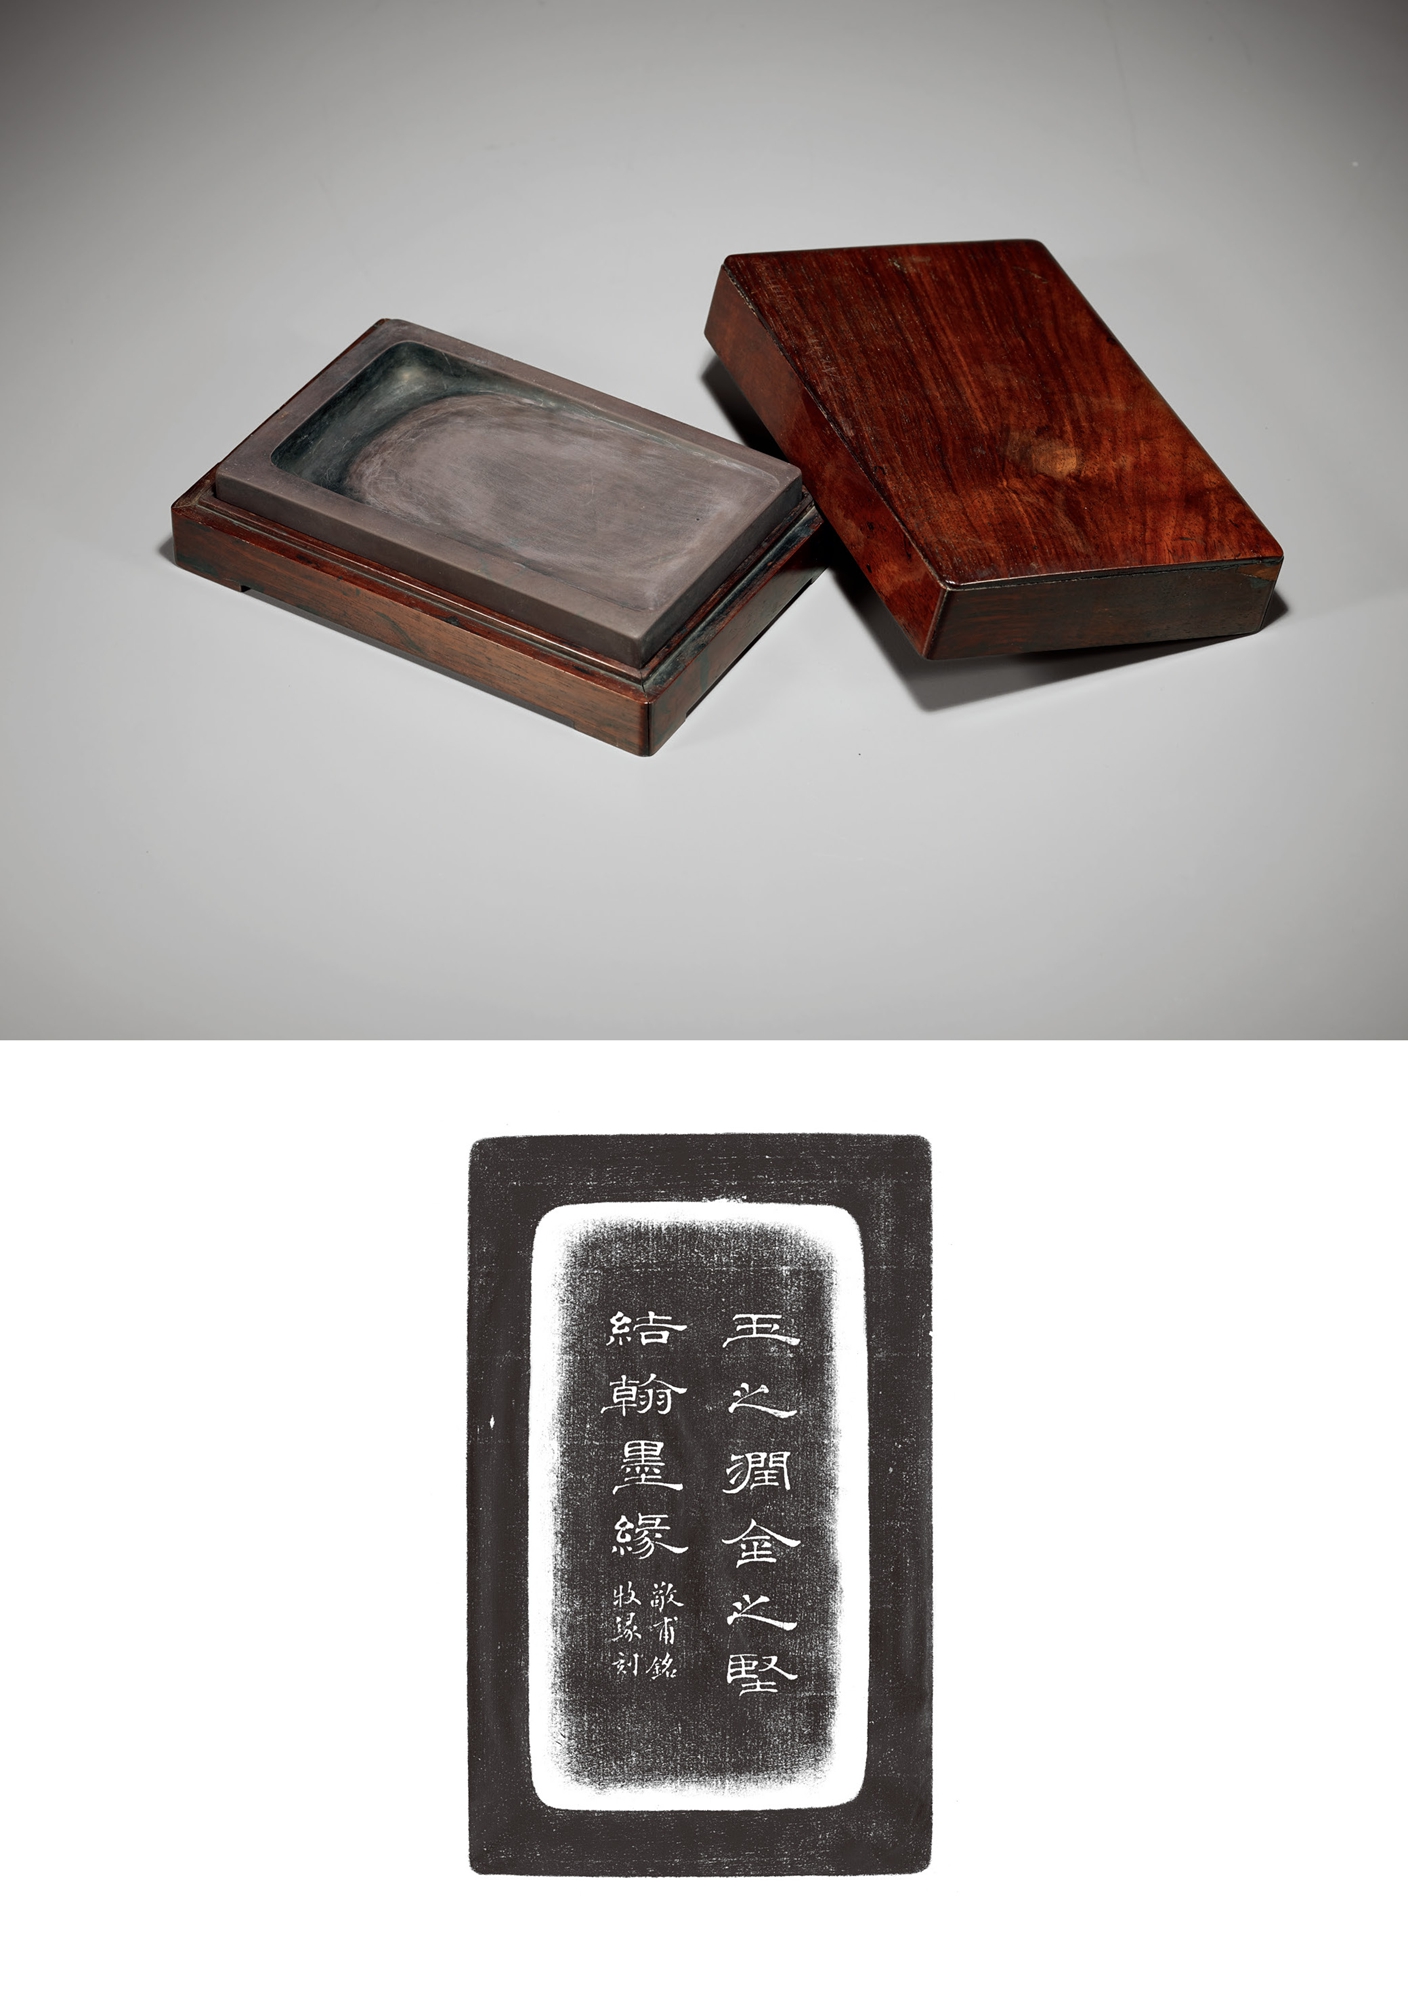 玉之潤金之堅
結翰墨緣
敬甫銘
牧緣刻